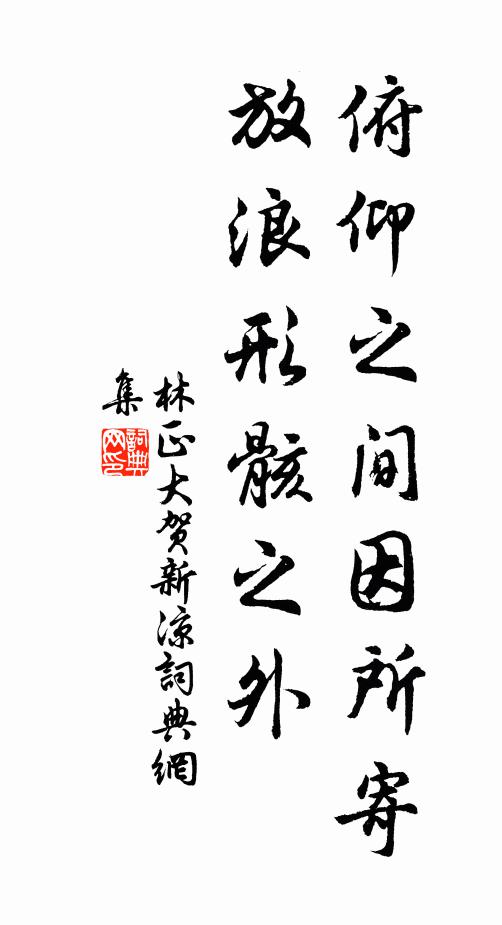 俯仰之间因所寄
放浪形骸之外
林正大贺新凉詞典網
集
詞典
网印